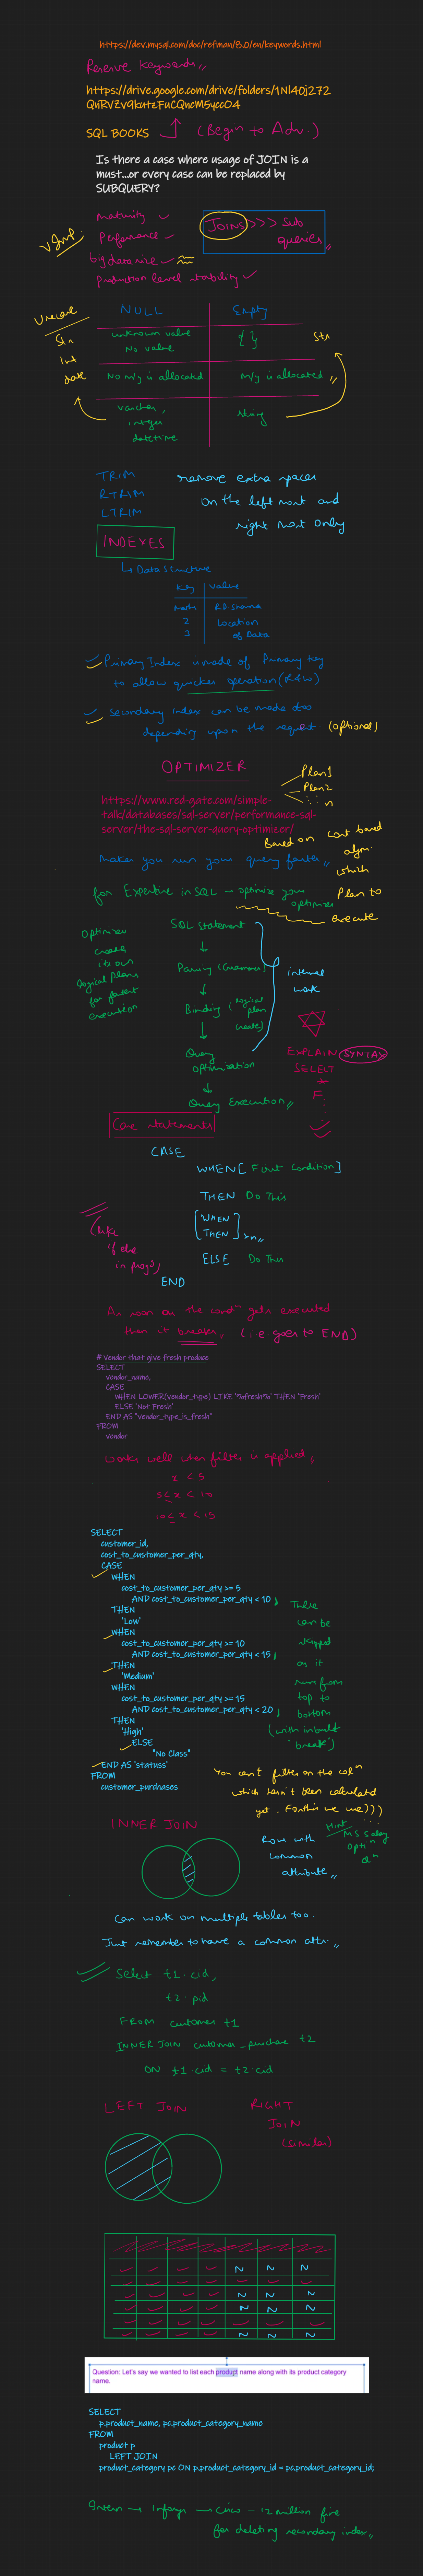 https://dev.mysql.com/doc/refman/8.0/en/keywords.html
Reserve Keywords
https://drive.google.com/drive/folders/1Nl40j272
QnRVzv9kutzFuCQncM5ycc04
SQL BOOKS (Begin to Adv.)
Is there a case where usage of JOIN is a
must...or every case can be replaced by
SUBQUERY?
maturity
JOINS >>> Sub
queries
Performance
V Imp
by data size
Production level stability
NULL Empty
unknown value
No value
{ }
Str
int
date
Str
No m/y is allocated
m/y is allocated
varchar,
integer
datetime
string
TRIM
RTRIM
LTRIM
remove extra spaces
on the left most and
right most only
INDEXES
Data Structure
Key Value
2
3
Location
of Data
Primary Index is made of Primary key
to allow quicker operation (R&W)
Secondary Index can be made also
depending upon the request (optional)
OPTIMIZER
Plan1
Plan2
n
https://www.red-gate.com/simple-
talk/databases/sql-server/performance-sql-
server/the-sql-server-query-optimizer/
Based on cost based
algm.
which
Plan to
execute
Makes you run your query faster
for Expertise in SQL → optimize your
optimizer
Optimizer
creates
its own
logical plans
for fastest
execution
SQL Statement
Parsing (Grammar)
Binding (logical
plan
create)
Query
optimization
Query Execution
internal
work
EXPLAIN SYNTAX
SELECT
*
F
Case statements
CASE
WHEN [First Condition]
THEN Do This
[WHEN
THEN] × n
ELSE Do This
END
(like
if else
in prog)
As soon as the condn gets executed
then it breaks, (i.e. goes to END)
# Vendor that give fresh produce
SELECT
vendor_name,
CASE
WHEN LOWER(vendor_type) LIKE '%fresh%' THEN 'Fresh'
ELSE 'Not Fresh'
END AS "vendor_type_is_fresh"
FROM
vendor
Works well when filter is applied
x < 5
5 ≤ x < 10
10 ≤ x < 15
SELECT
customer_id,
cost_to_customer_per_qty,
CASE
WHEN
cost_to_customer_per_qty >= 5
AND cost_to_customer_per_qty < 10
THEN
'Low'
WHEN
cost_to_customer_per_qty >= 10
AND cost_to_customer_per_qty < 15
THEN
'Medium'
WHEN
cost_to_customer_per_qty >= 15
AND cost_to_customer_per_qty < 20
THEN
'High'
ELSE
"No Class"
END AS 'statuss'
FROM
customer_purchases
These
can be
skipped
as it
runs from
top to
bottom
(with inbuilt
'break')
You can't filter on the coln
which hasn't been calculated
yet.
Hint
INNER JOIN
Rows with
common
attribute
Can work on multiple tables too.
Just remember to have a common attr.
Select t1.cid,
t2.pid
FROM customer t1
INNER JOIN customer_purchase t2
ON t1.cid = t2.cid
LEFT JOIN
RIGHT
JOIN
(similar)
N N N
N N N
N N N
N N N
Question: Let's say we wanted to list each product name along with its product category
name.
SELECT
p.product_name, pc.product_category_name
FROM
product p
LEFT JOIN
product_category pc ON p.product_category_id = pc.product_category_id;
Intern → Infosys → Cisco - 12 million fine
for deleting secondary index